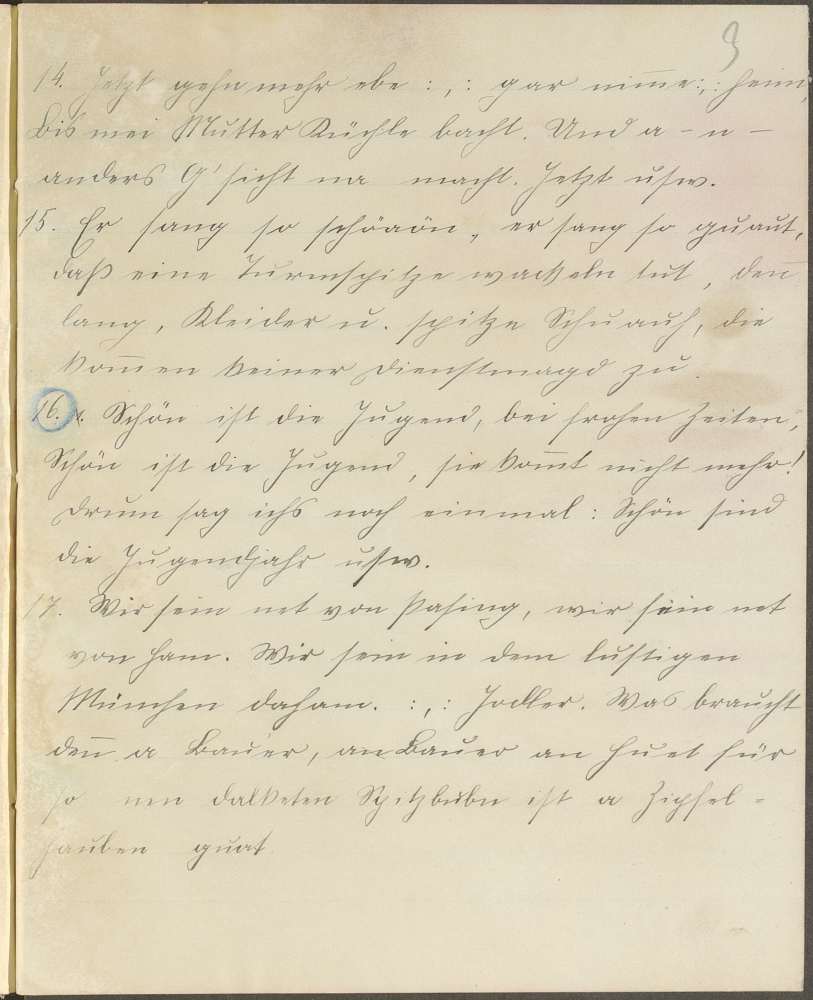 3
14. Jetzt gehn mehr ebe :,: gar nim̄e :,: heim,
Bis mei Mutter Küchle bacht. Und a - n -
anders G'sicht na macht. Jetzt usw.
15. Er sang so schöaön, er sang so guaut,
daß eine Turmspitze wackeln tut, den̄
lang, Kleider u. spitze Schuauh, die
kom̄en keiner Dienstmagd zu.
16. Schön ist die Jugend, bei frohen Zeiten,
Schön ist die Jugend, sie kom̄t nicht mehr!
Drum sag ichs noch einmal: Schön sind
die Jugendjahr usw.
17. Wir sein net von Pasing, wir sein net
von Ham. Wir sein in dem lustigen
München daham. :,: Jodler. Was braucht
den̄ a Bauer, an Bauer an Huet für
so nen dalketen Spitzbubn ist a Zipfel-
hauben guat